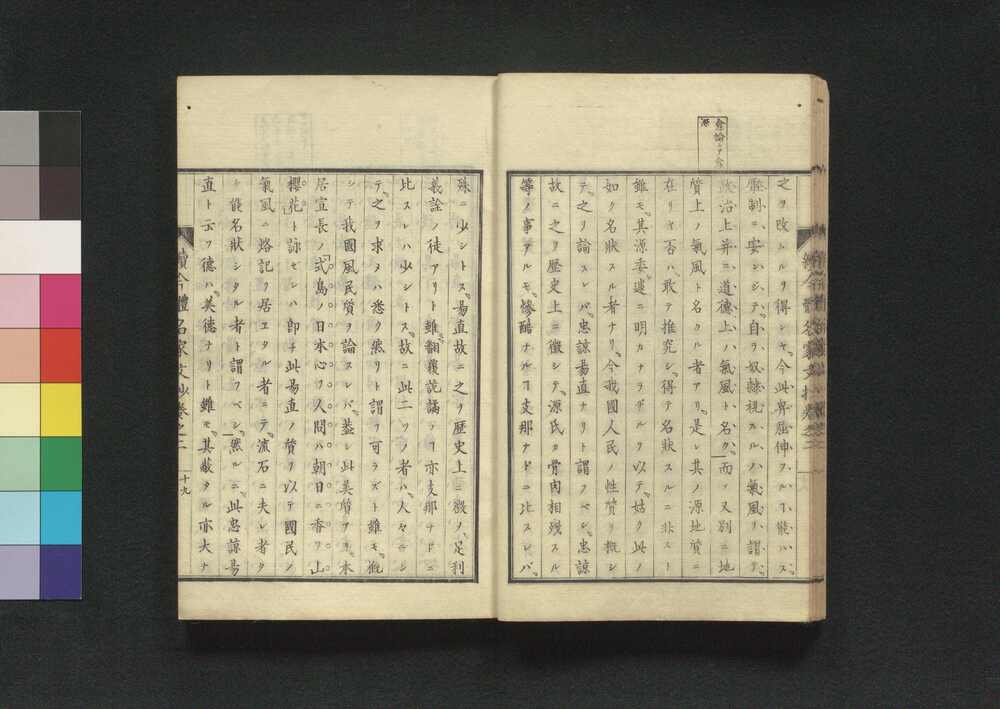 之ヲ改ムルヲ得ンヤ、今此卑屈伸フル能ハス、
壓制ニ安ンジテ、自ラ奴隷視スルノ氣風ヲ謂テ
政治上并ニ道德上ノ氣風ト名ク、而ノ又別ニ地
質上ノ氣風ト名クル者アリ、是レ其ノ源地質ニ
在リヤ否ハ、敢テ推究シ得テ名狀スルニ非スト
雖モ、其源委遽ニ明カナラザルヲ以テ姑ク此ノ
如ク名狀スル者ナリ、今我國人民ノ性質ヲ概シ
テ之ヲ論スレバ、忠諒易直ナリト謂フベシ、忠諒
故ニ之ヲ歷史上ニ徵シテ、源氏ノ骨肉相殘スル
等ノ事アルモ、慘酷ナルヿ支那ナドニ比スレバ、
殊ニ少シトス、易直故ニ之ヲ歷史上ニ徵ノ、足利
義詮ノ徒アリト雖モ、翻覆詭譎ノヿ亦支那ナドニ
比スレハ少シトス、故ニ此二ツノ者ハ、人々ニシ
テ之ヲ求メハ悉ク然リト謂フ可ラズト雖モ、概
シテ我國風民質ヲ論スレバ、蓋シ此美質アリ、本
居宣長ノ「式島ノ日本心ヲ人問ハ朝日ニ香フ山
櫻花」ト詠セシハ卽チ此易直ノ質ヲ以テ國民ノ
氣風ニ烙記ヲ居ヱタル者ニテ、流石ニ夫レ者タ
ト能名狀シタル者ト謂フベシ、然ルニ此忠諒易
直ト云フ德ハ、美德ナリト雖モ、其蔽タル亦大ナ
續今體名家文抄卷之二
十九